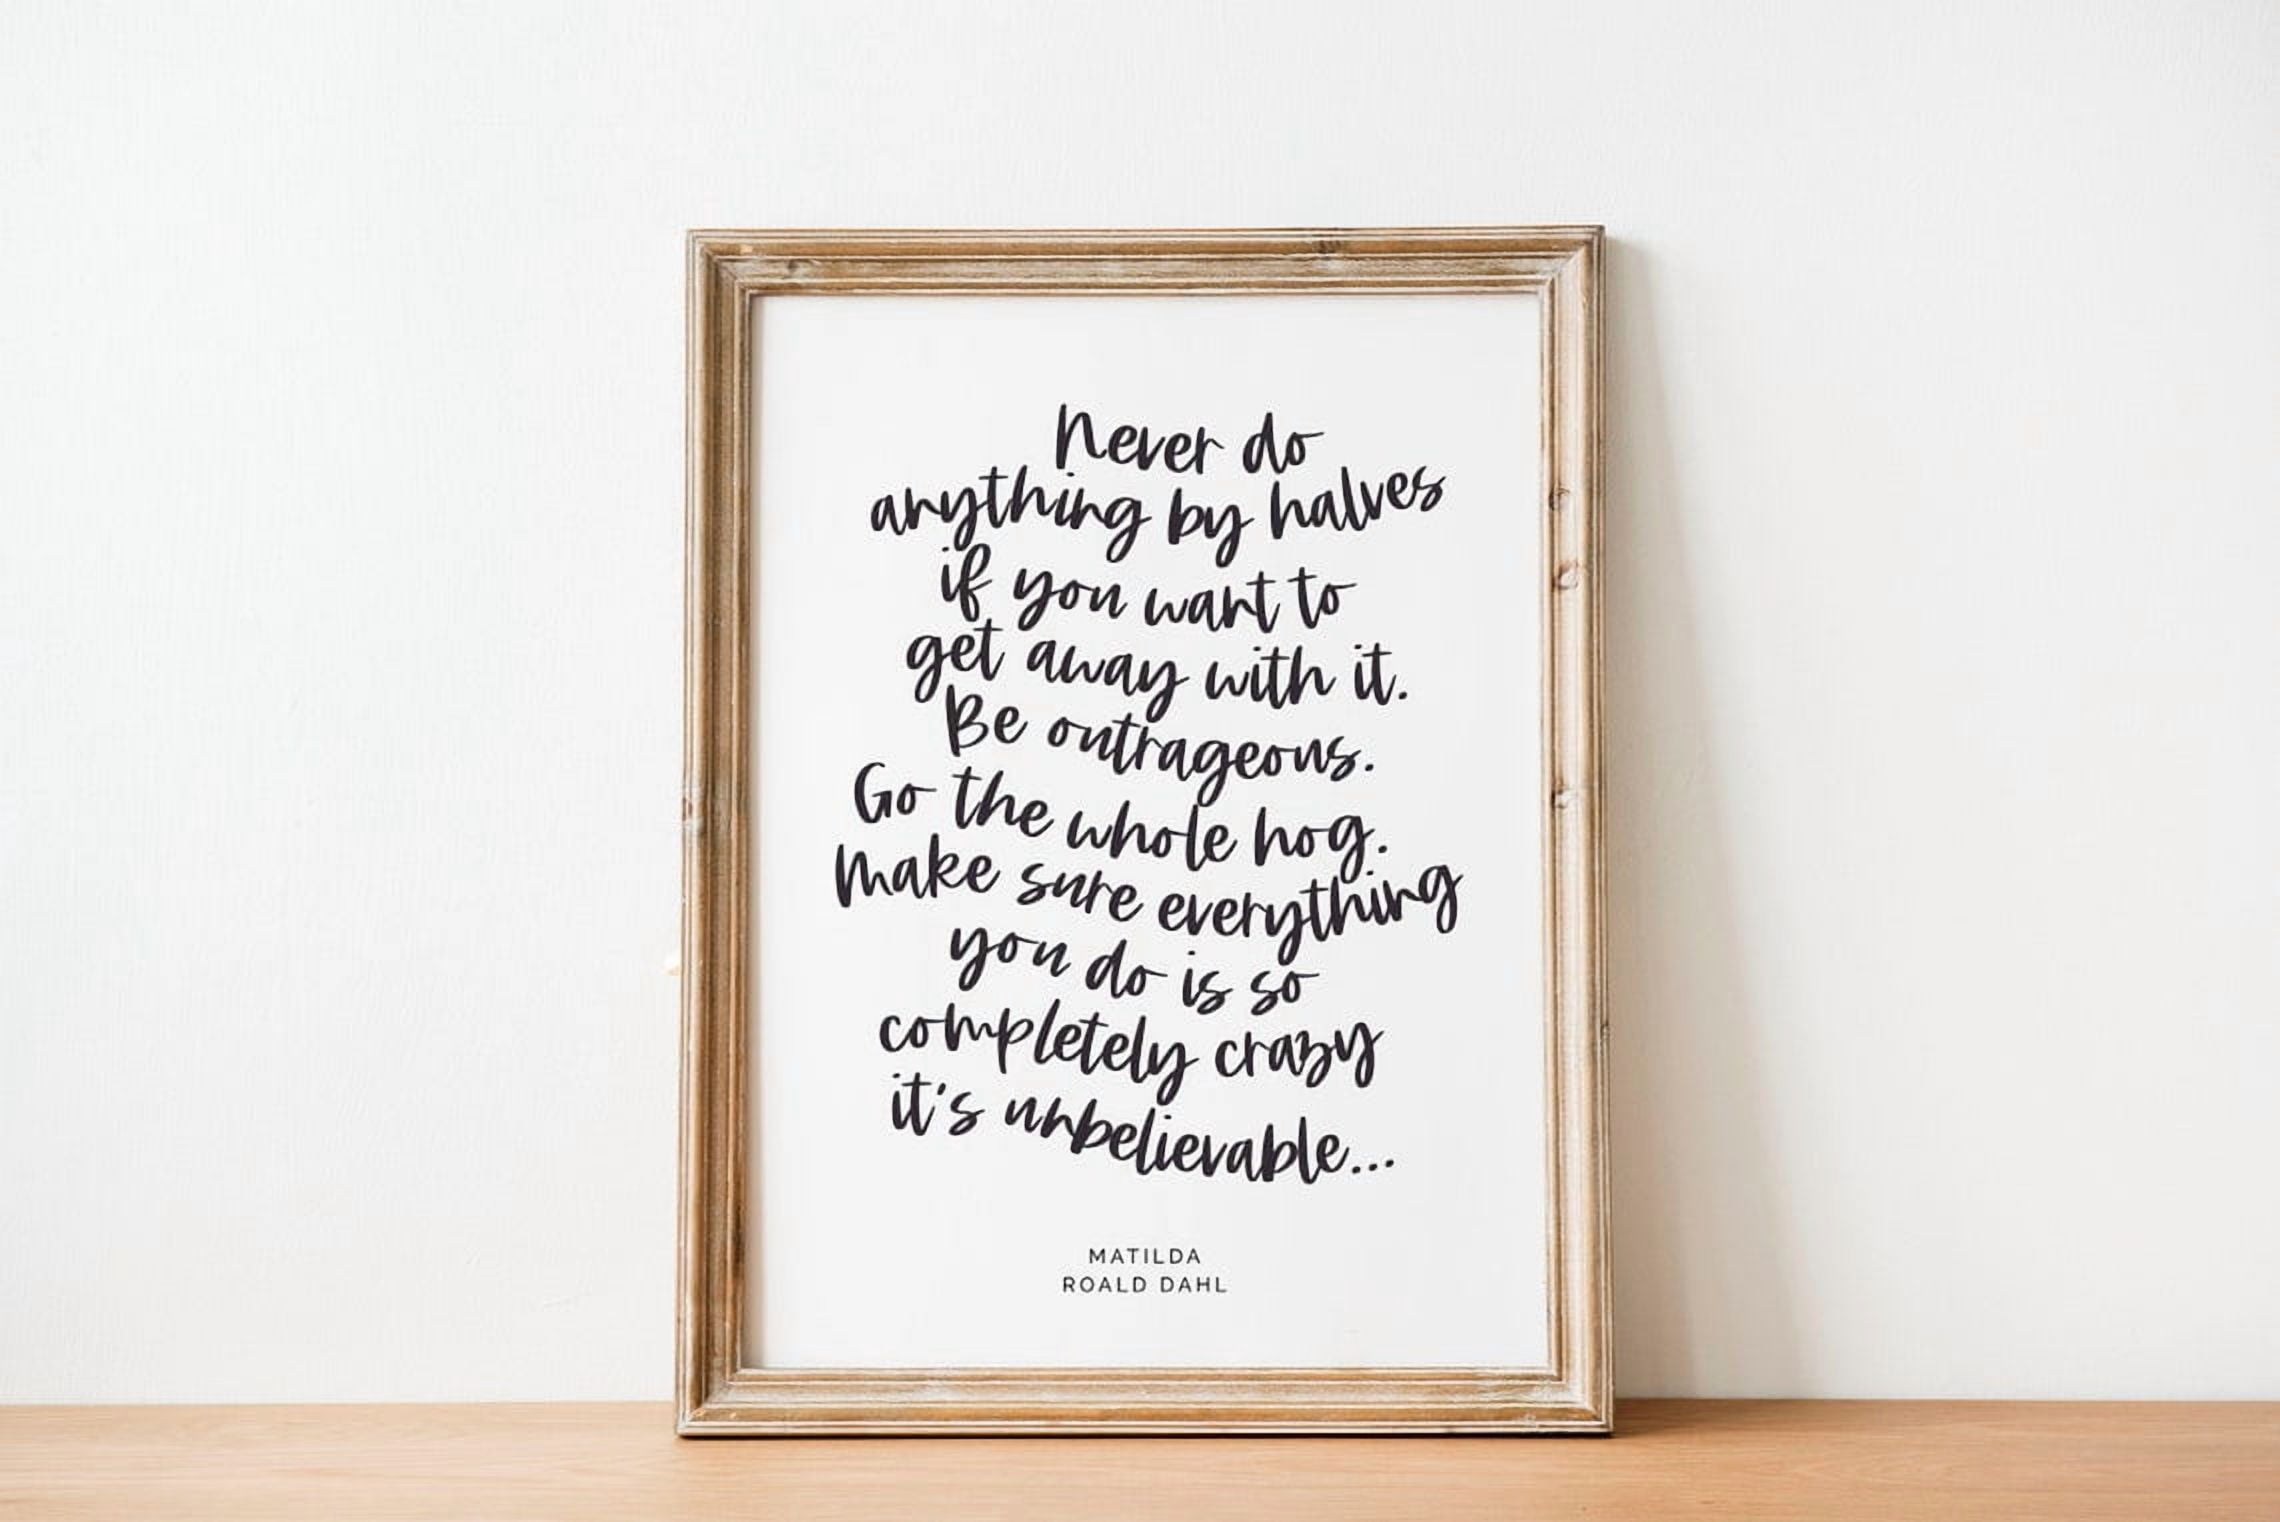 Never do
anything by halves
if you want to
get away with it.
Be outrageous.
Go the whole hog.
Make sure everything
you do is so
completely crazy
it's unbelievable...
MATILDA
ROALD DAHL